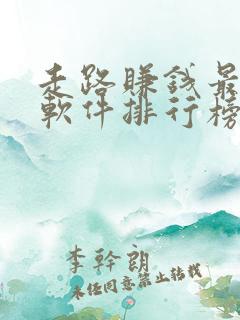 走路賺錢最
軟件排行榜
李幹朗
未经同意禁止转载